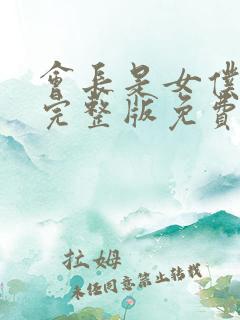 會長是女僕
完整版免費
拉姆
未经同意禁止转载